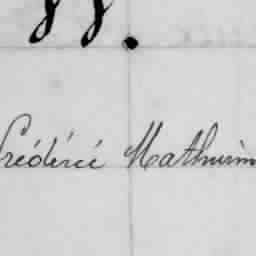 Frédéric Mathurin